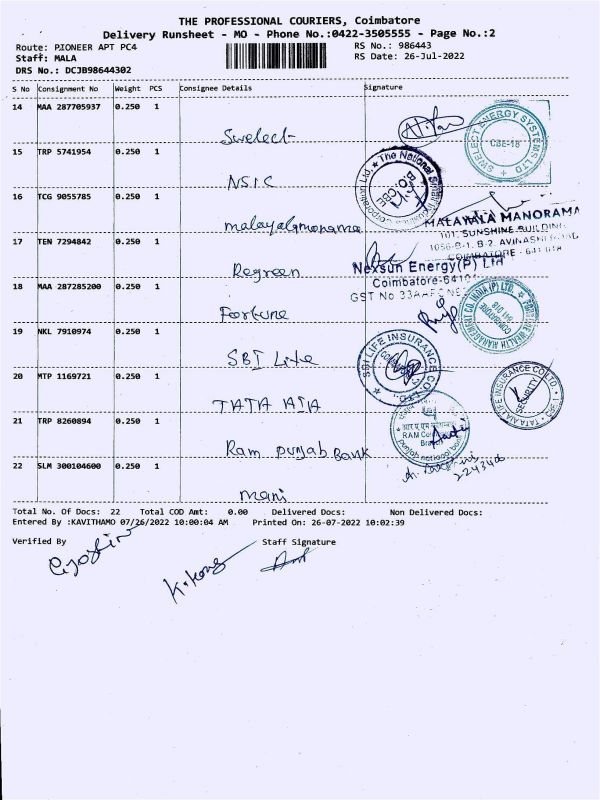 THE PROFESSIONAL COURIERS, Coimbatore
Delivery Runsheet - MO - Phone No.:0422-3505555 - Page No.:2
Route: PIONEER APT PC4
RS No.: 986443
Staff: MALA
RS Date: 26-Jul-2022
DRS No.: DCJB98644302
S No Consignment No Weight PCS Consignee Details Signature
14 MAA 287705937 0.250 1
Swelect
SWELECT ENERGY SYSTEMS LTD
CBE-18
15 TRP 5741954 0.250 1
NSIC
The National Small Industries Corporation Ltd.
B.O. CBE
16 TCG 9055785 0.250 1
malayalamanorama
MALAYALA MANORAMA
101, SUNSHINE BUILDING
1056-B-1, B-2, AVINASHI ROAD
COIMBATORE - 641 018
17 TEN 7294842 0.250 1
Regreen
Nexsun Energy(P) Ltd
Coimbatore-6410
GST No 33A
18 MAA 287285200 0.250 1
Fortune
FORTUNE WEALTH MANAGEMENT CO. INDIA (P) LTD.
COIMBATORE
641 018
19 NKL 7910974 0.250 1
SBI Life
SBI LIFE INSURANCE CO. LTD.
20 MTP 1169721 0.250 1
TATA AIA
TATA AIA LIFE INSURANCE CO LTD.
SECURITY
21 TRP 8260894 0.250 1
Ram punjab Bank
RAM Co
Br
punjab national bank
22 SLM 300104600 0.250 1
mani
224340
Total No. Of Docs: 22 Total COD Amt: 0.00 Delivered Docs: Non Delivered Docs:
Entered By :KAVITHAMO 07/26/2022 10:00:04 AM Printed On: 26-07-2022 10:02:39
Verified By Staff Signature